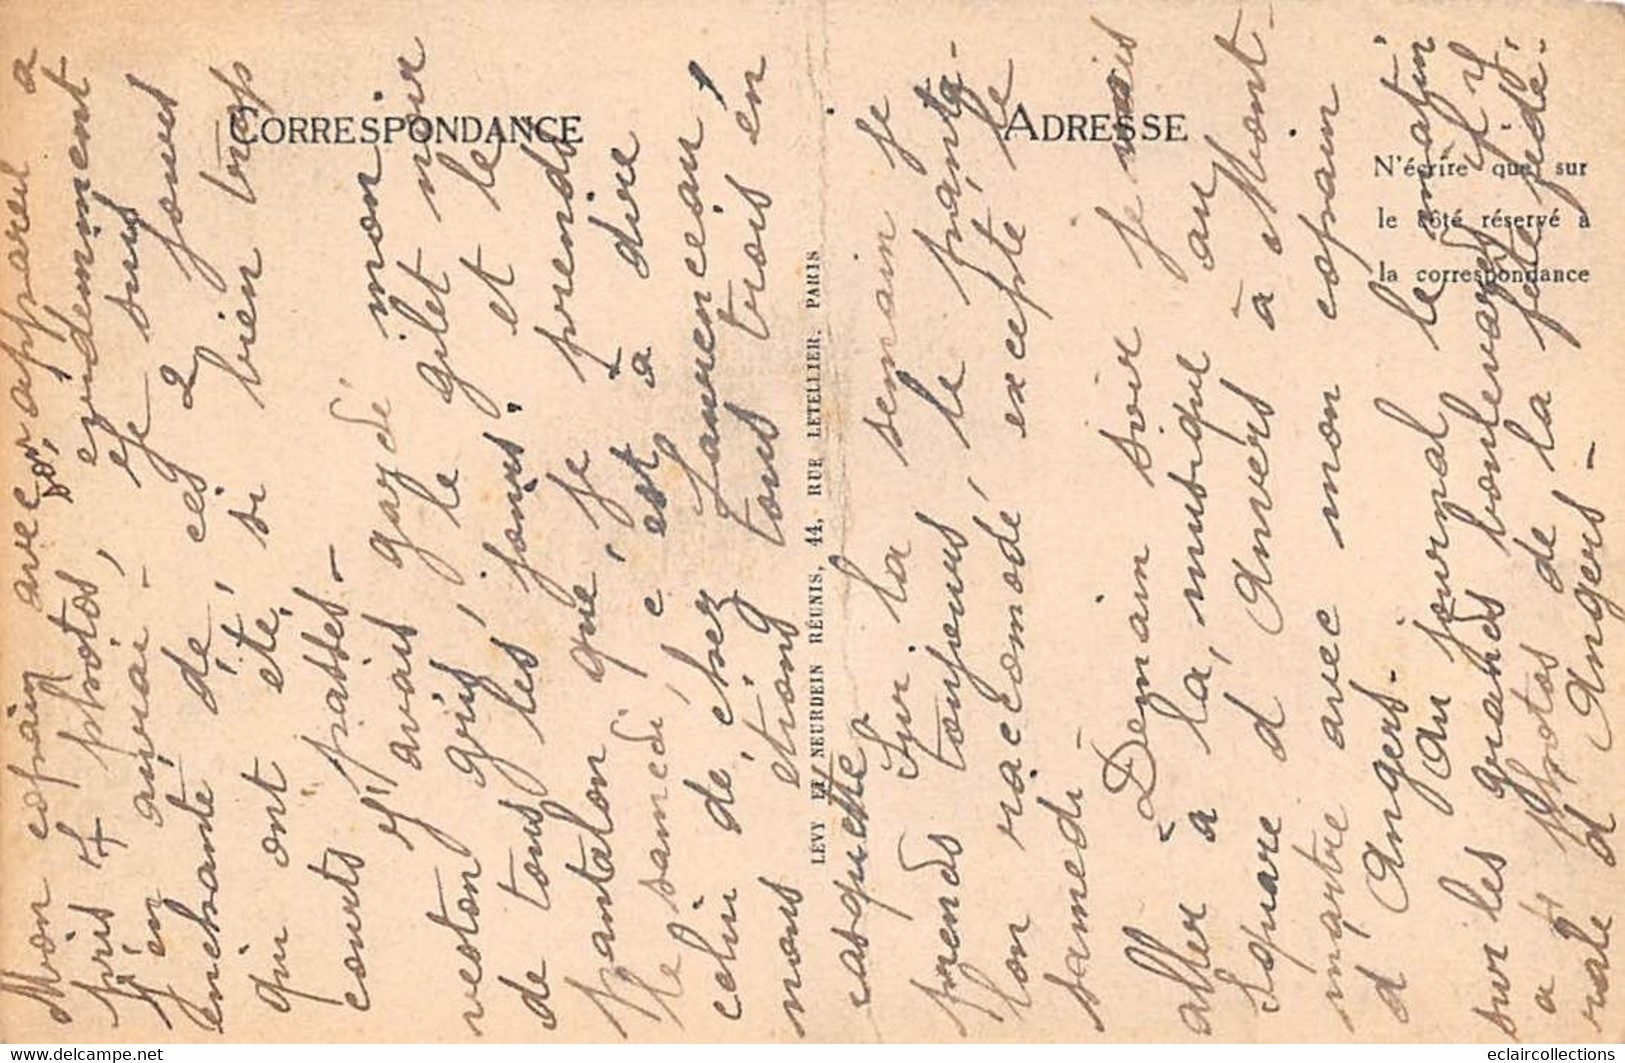 CORRESPONDANCE
ADRESSE
N'écrire que sur
le côté réservé à
la correspondance
LEVY ET NEURDEIN RÉUNIS, 44, RUE LETELLIER, PARIS
Mon copain avec son appareil a
pris 7 photos, evidemment
j'en aurai - Je suis
enchanté de ces 2 jours
qui ont été si bien trop
courts passés -
J'avais gardé mon
veston gris, le gilet noir
de tous les jours, et le
pantalon que je prends
le samedi, c'est à dire
celui de chez Laurenceau,
nous étions tous trois en
casquette
Sur la semain je
prends toujours le panta-
lon raccomodé excepté le
samedi -
Demain soir je vais
aller à la musique au
square d'Anvers à Mont-
martre avec mon copain
d'Angers.
Au journal le matin
sur les grands boulevards il y
a photos de la fête fédé-
rale d'Angers -
eclaircollections